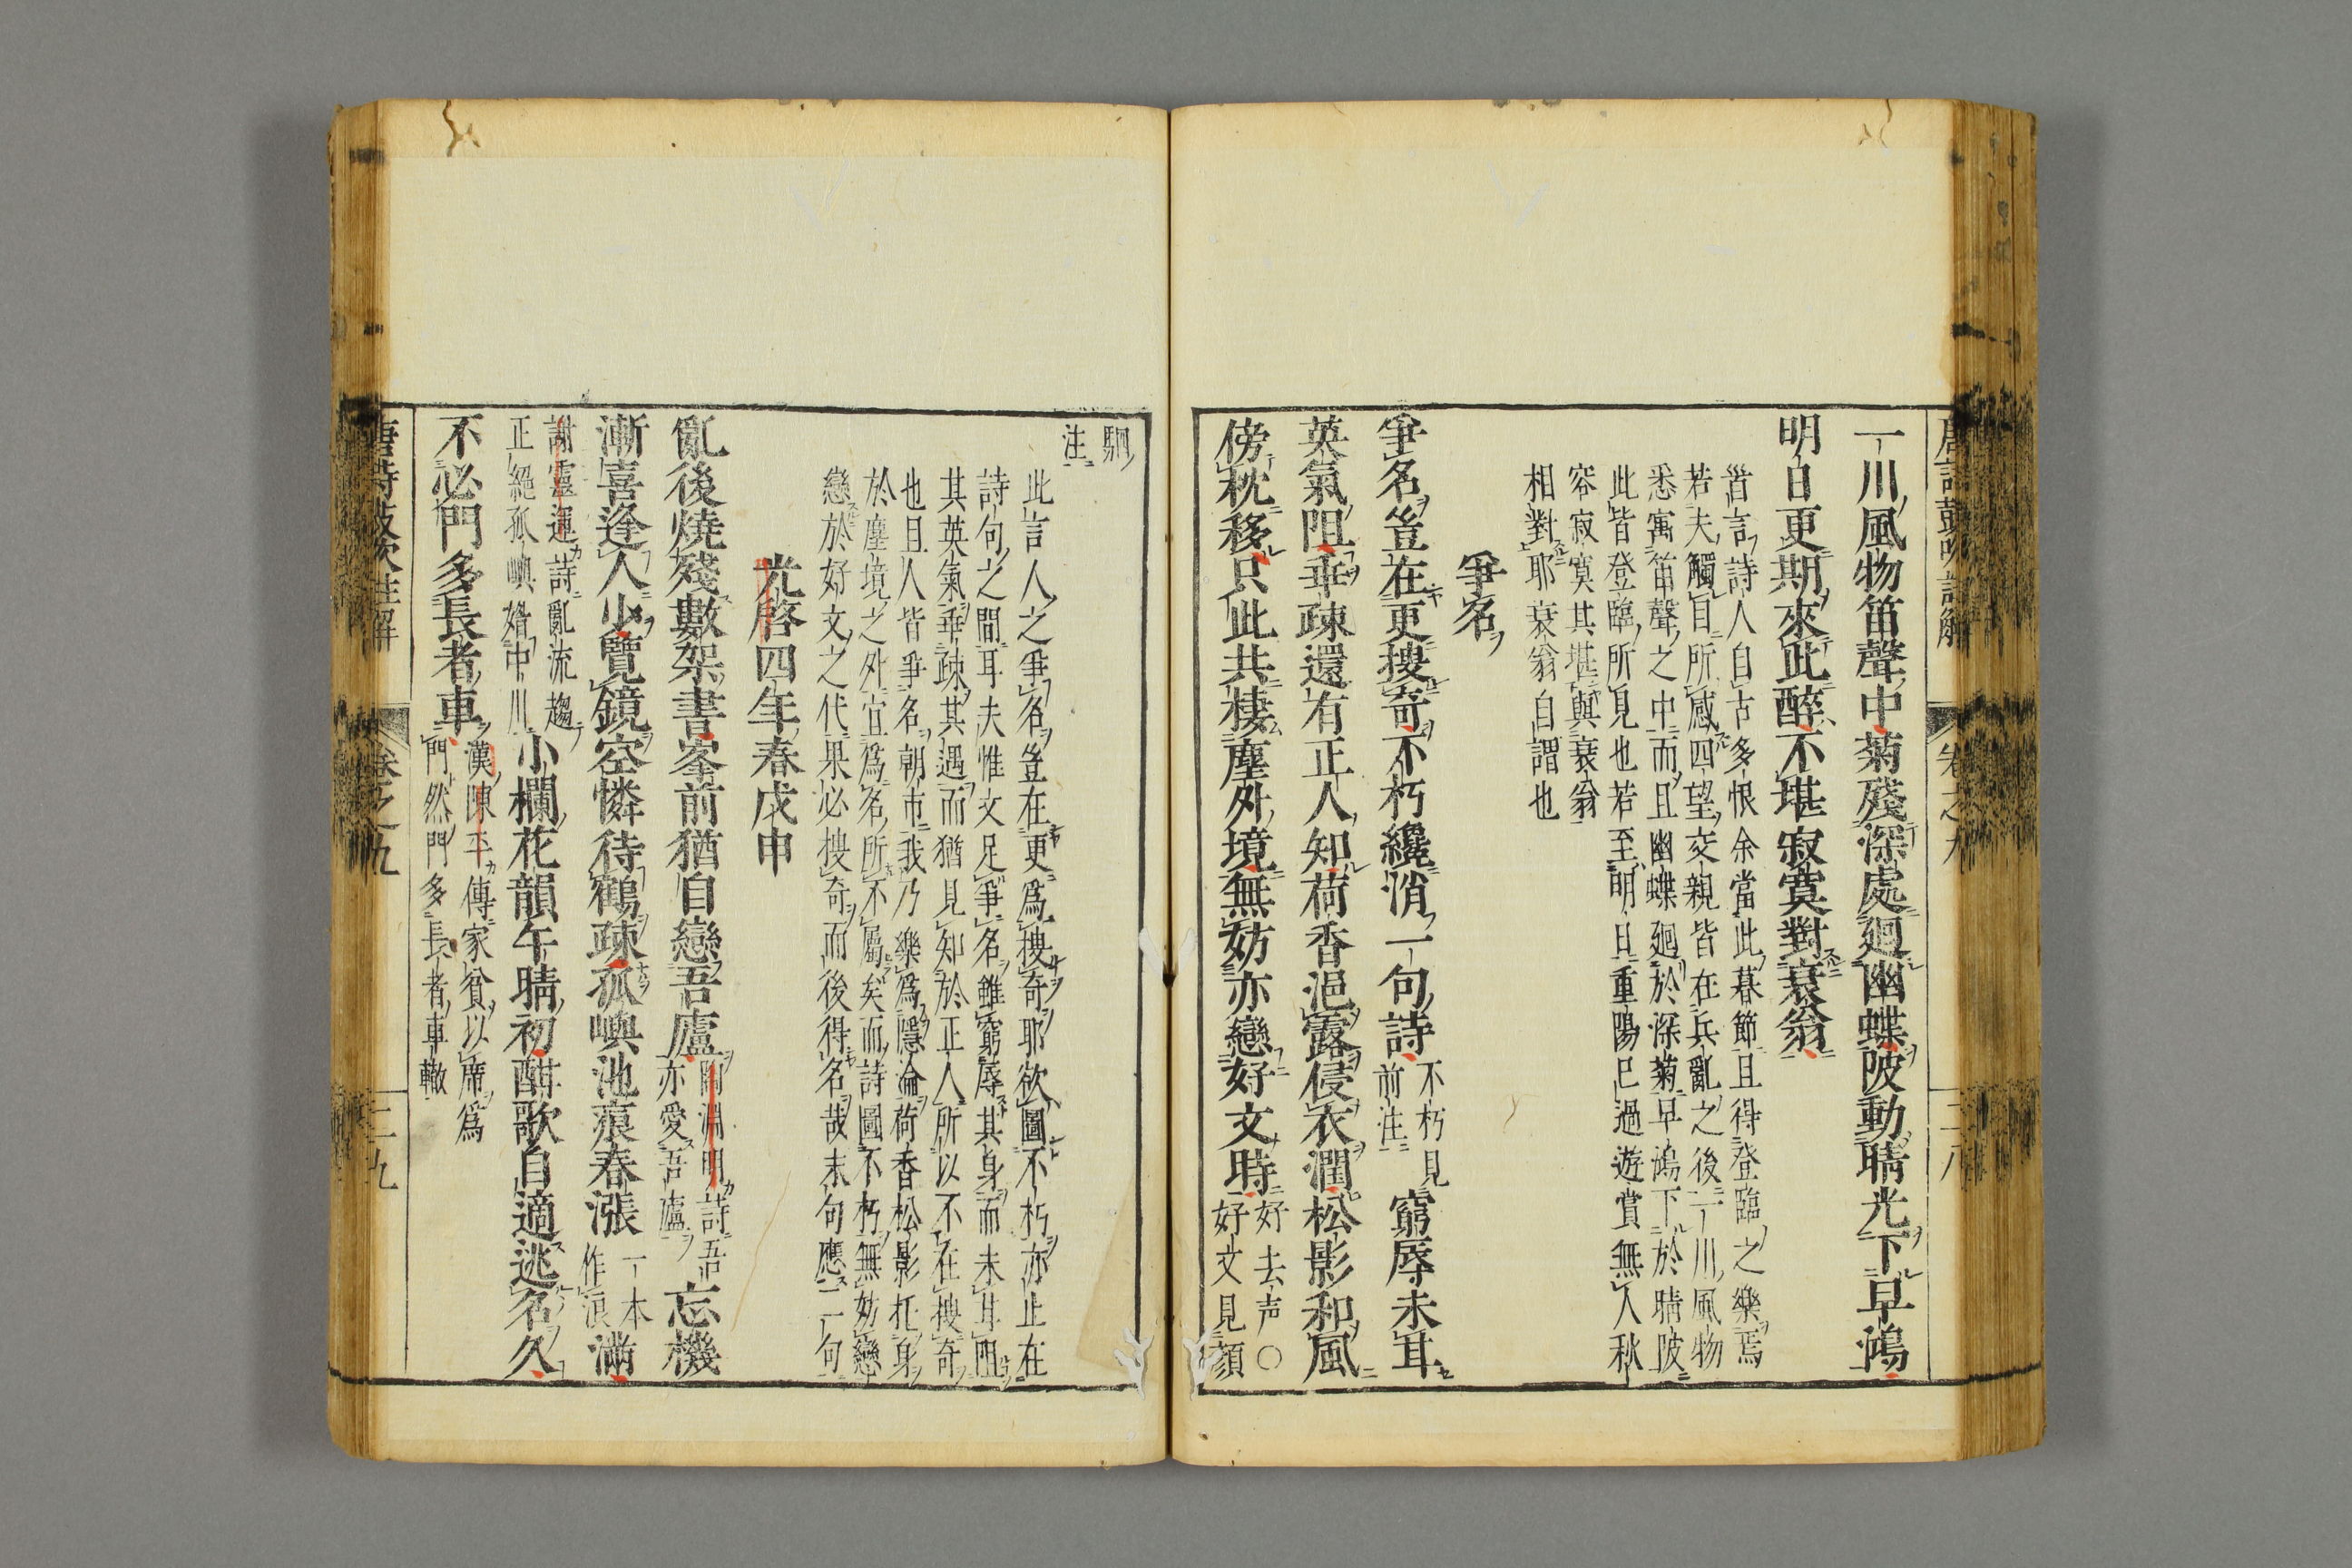 一川風物笛聲中菊殘深處廻幽蝶陂動晴光下早鴻
明日更期來此醉不堪寂寞對衰翁
言詩人自古多恨余當此暮節且得登臨之樂焉
若夫觸目所感四望交親皆在兵亂之後一川風物
悉寓笛聲之中而且幽蝶廻於深菊早鴻下於晴陂
此皆登臨所見也若至明日重陽已過遊賞無人秋
容寂寞其堪與衰翁
相對耶衰翁自謂也
爭名
爭名豈在更搜奇不朽纔消一句詩不朽見前注窮辱未甘
英氣阻乖疎還有正人知荷香浥露侵衣潤松影和風
傍枕移只此共棲塵外境無妨亦戀好文時好去声○好文見顏
駟注
此言人之爭名豈在更爲搜奇耶欲圖不朽亦止在
詩句之間耳夫惟文足爭名雖窮辱其身而未甘阻
其英氣乖疎其遇而猶見知於正人所以不在搜奇
也且人皆爭名朝市我乃樂爲隱淪荷香松影托身
於塵境之外宜爲名所不屬矣而詩圖不朽無妨戀
戀於好文之代果必搜奇而後得名哉末句應二句
光啓四年春戊申
亂後燒殘數架書峯前猶自戀吾廬陶淵明詩吾亦愛吾廬忘機
漸喜逢人少覽鏡空憐待鶴疎孤嶼池痕春漲一本作浪滿
謝靈運詩亂流趨正絕孤嶼媚中川小欄花韻午晴初酣歌自適逃名久
不必門多長者車漢陳平傳家貧以席爲門然門多長者車轍
唐詩鼓吹註解 卷之九 二九